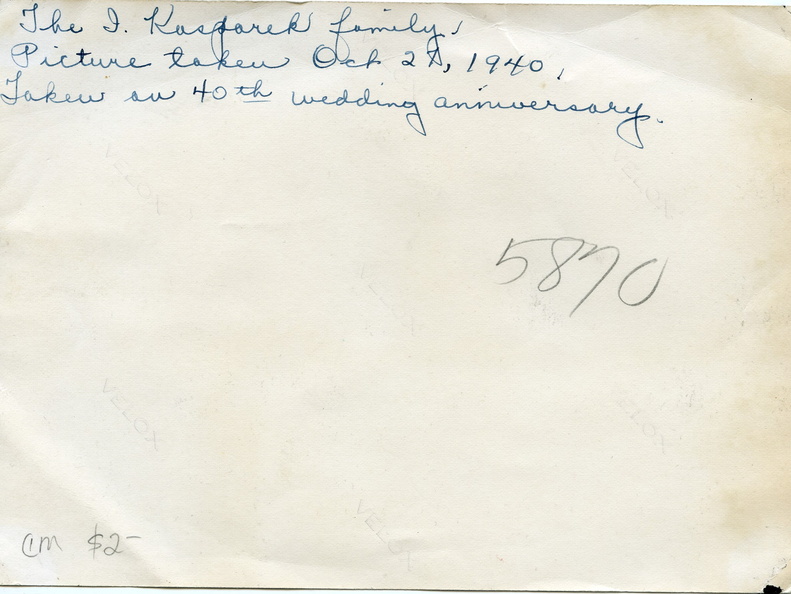 The I. Kasparek family,
Picture taken Oct 27, 1940,
Taken on 40th wedding anniversary.
VELOX
VELOX
5870
VELOX
VELOX
VELOX
CM $2-